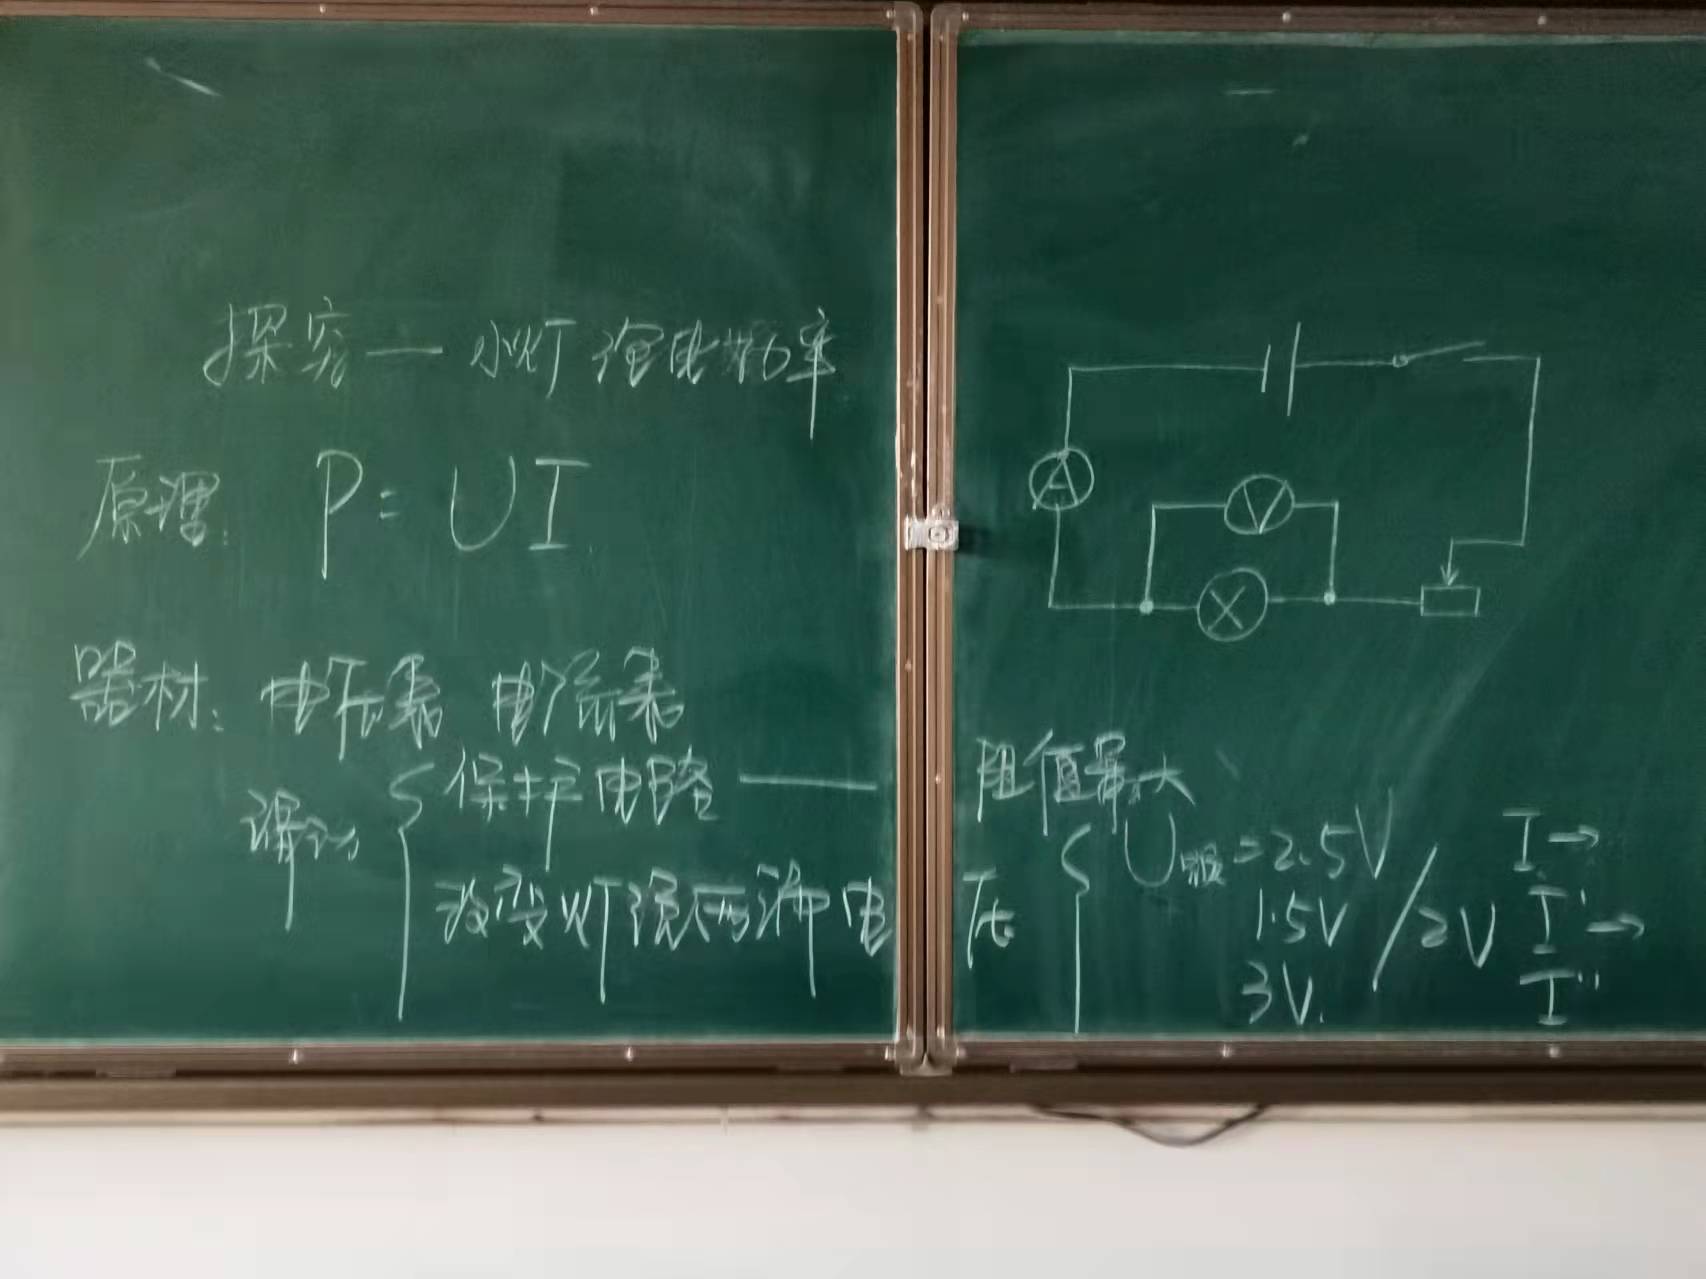 探究一 小灯泡电功率
原理: P=UI
器材: 电压表 电流表
滑动 { 保护电路 —— 阻值最大
改变灯泡两端电压 { U额=2.5V I→
1.5V / 2V I'→
3V. I''
A
V